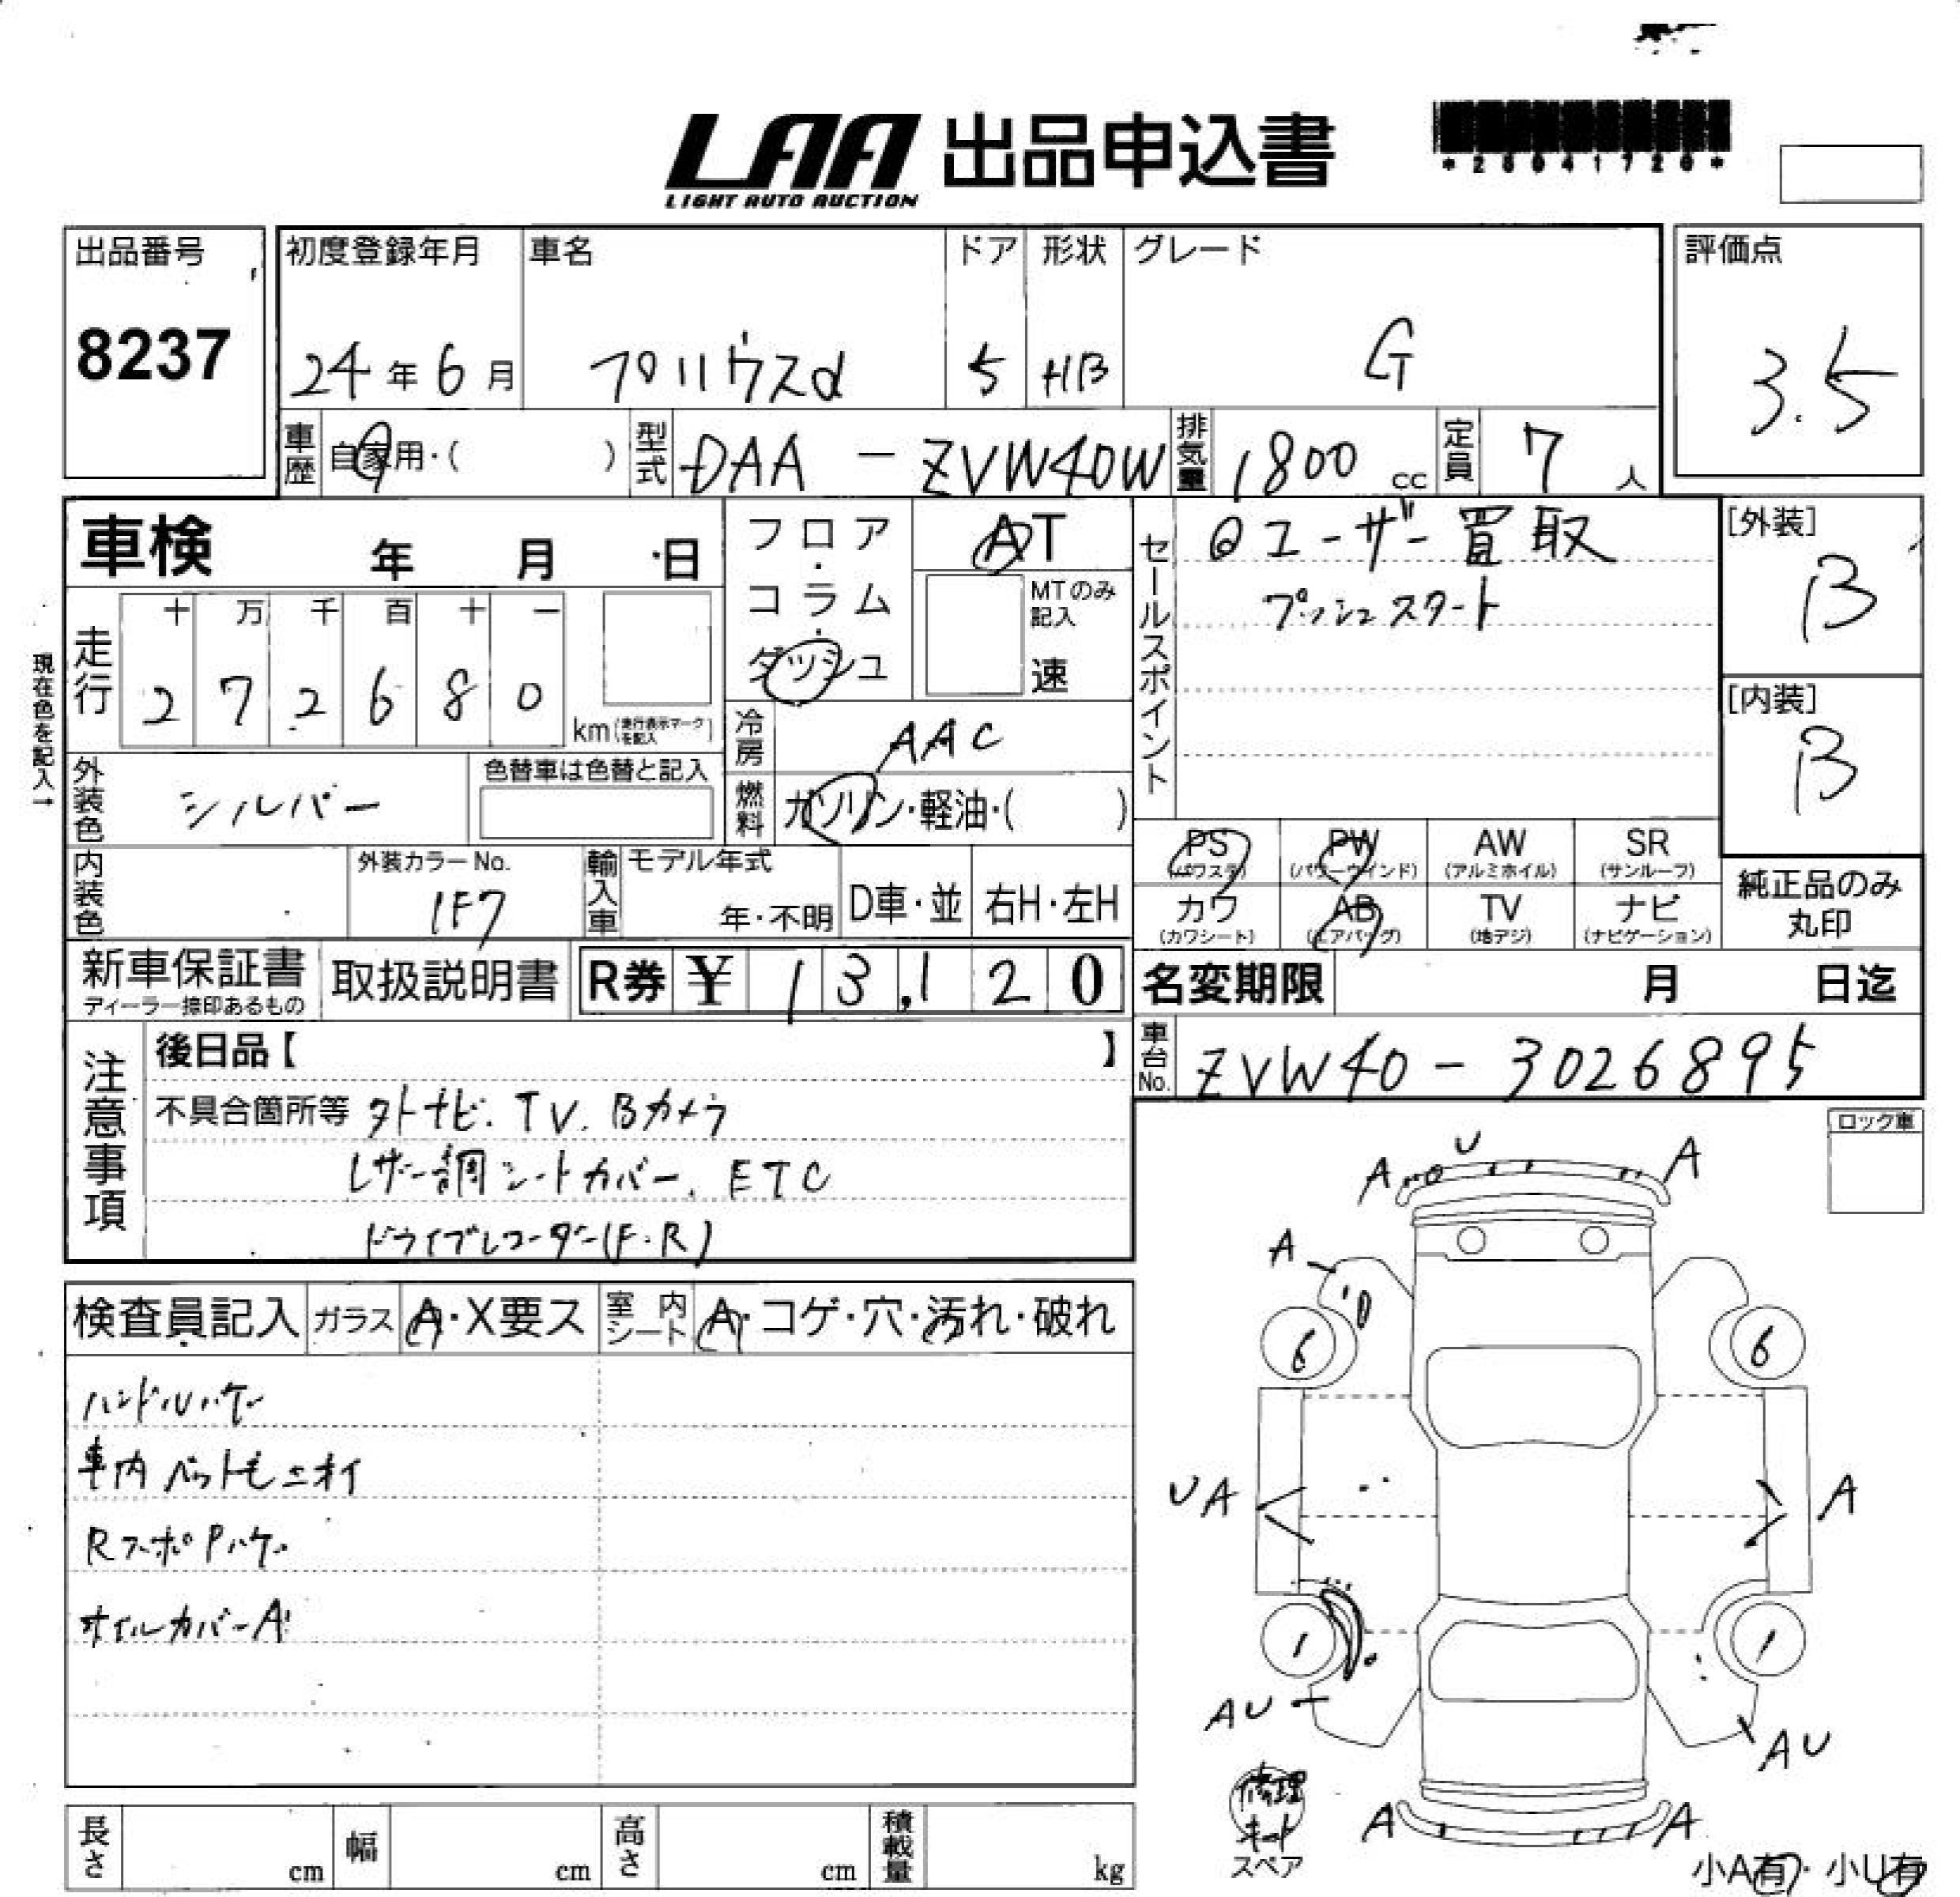 LAA 出品申込書
LIGHT AUTO AUCTION
*26041720*
出品番号
8237
初度登録年月
24年6月
車名
プリウスα
ドア
5
形状
HB
グレード
G
評価点
3.5
車歴 自家用・( )
型式 DAA - ZVW40W
排気量 1800 cc
定員 7 人
車検 年 月 日
フロア・コラム・ダッシュ
AT
MTのみ記入
速
セールスポイント
◎ユーザー買取
プッシュスタート
[外装]
B
[内装]
B
現在色を記入→
走行
十 万 千 百 十 一
2 7 2 6 8 0
km (走行表示マークを記入)
冷房 AAC
燃料 ガソリン・軽油・( )
外装色 シルバー
色替車は色替と記入
内装色
外装カラーNo.
1F7
輸入車
モデル年式
年・不明
D車・並
右H・左H
PS (パワステ)
PW (パワーウインド)
AW (アルミホイル)
SR (サンルーフ)
カワ (カワシート)
AB (エアバッグ)
TV (地デジ)
ナビ (ナビゲーション)
純正品のみ丸印
新車保証書
ディーラー捺印あるもの
取扱説明書
R券 ¥ 13,120
名変期限 月 日迄
車台No. ZVW40 - 3026895
注意事項
後日品【 】
不具合箇所等 外ナビ. TV. Bカメラ
レザー調シートカバー. ETC
ドライブレコーダー(F・R)
ロック車
検査員記入
ガラス A・X要ス
室内シート A・コゲ・穴・汚れ・破れ
ハンドルハゲ
車内ペット毛ニオイ
RスポPハゲ
オイルカバーA
A U A
A
6 6
UA A
1 1
AU AU
A A
修理キット
スペア
小A有・小U有
長さ cm
幅 cm
高さ cm
積載量 kg